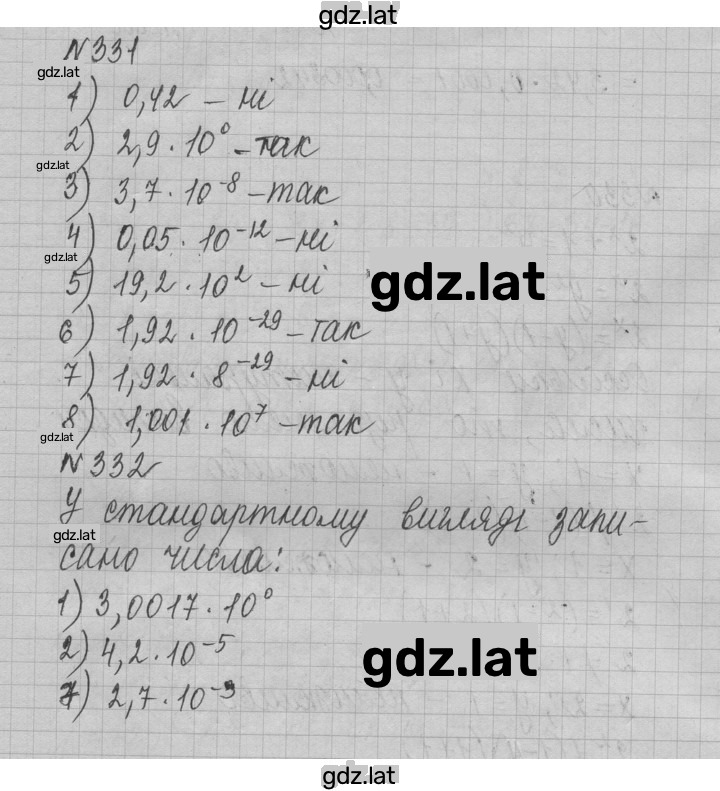 gdz.lat
№331
gdz.lat
1) 0,42 – ні
2) 2,9 · 10⁰ – так
gdz.lat
3) 3,7 · 10⁻⁸ – так
4) 0,05 · 10⁻¹² – ні
gdz.lat
gdz.lat
5) 19,2 · 10² – ні
6) 1,92 · 10⁻²⁹ – так
7) 1,92 · 8⁻²⁹ – ні
8) 1,001 · 10⁷ – так
gdz.lat
№332
У стандартному вигляді запи-
gdz.lat
сано числа:
1) 3,0017 · 10⁰
2) 4,2 · 10⁻⁵
gdz.lat
7) 2,7 · 10⁻³
gdz.lat